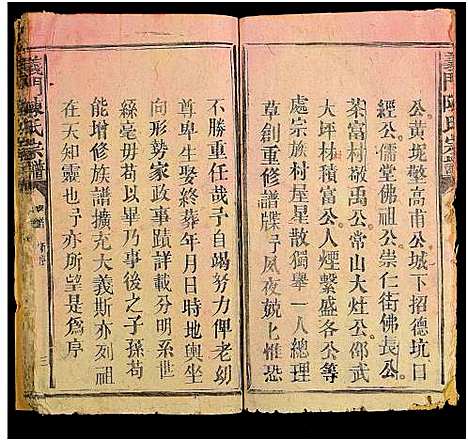 義門陳氏宗譜
公黃坭警高甫公城下招德坑口
經公儒堂佛祖公崇仁街佛長公
茶富村敬禹公常山大灶公邵武
大坪林積富公人煙繁盛各公等
處宗族村屋星散獨舉一人總理
草創重修譜牒予夙夜兢匕惟恐
不勝重任哉予自竭努力俾老幼
尊卑生娶終葬年月日時地輿坐
向形勢家政事蹟詳載分明系世
綠毫毋苟以畢乃事後之子孫苟
能增修族譜擴充大義斯亦列祖
在天知靈也予亦所望是為序
義門陳氏宗譜
三